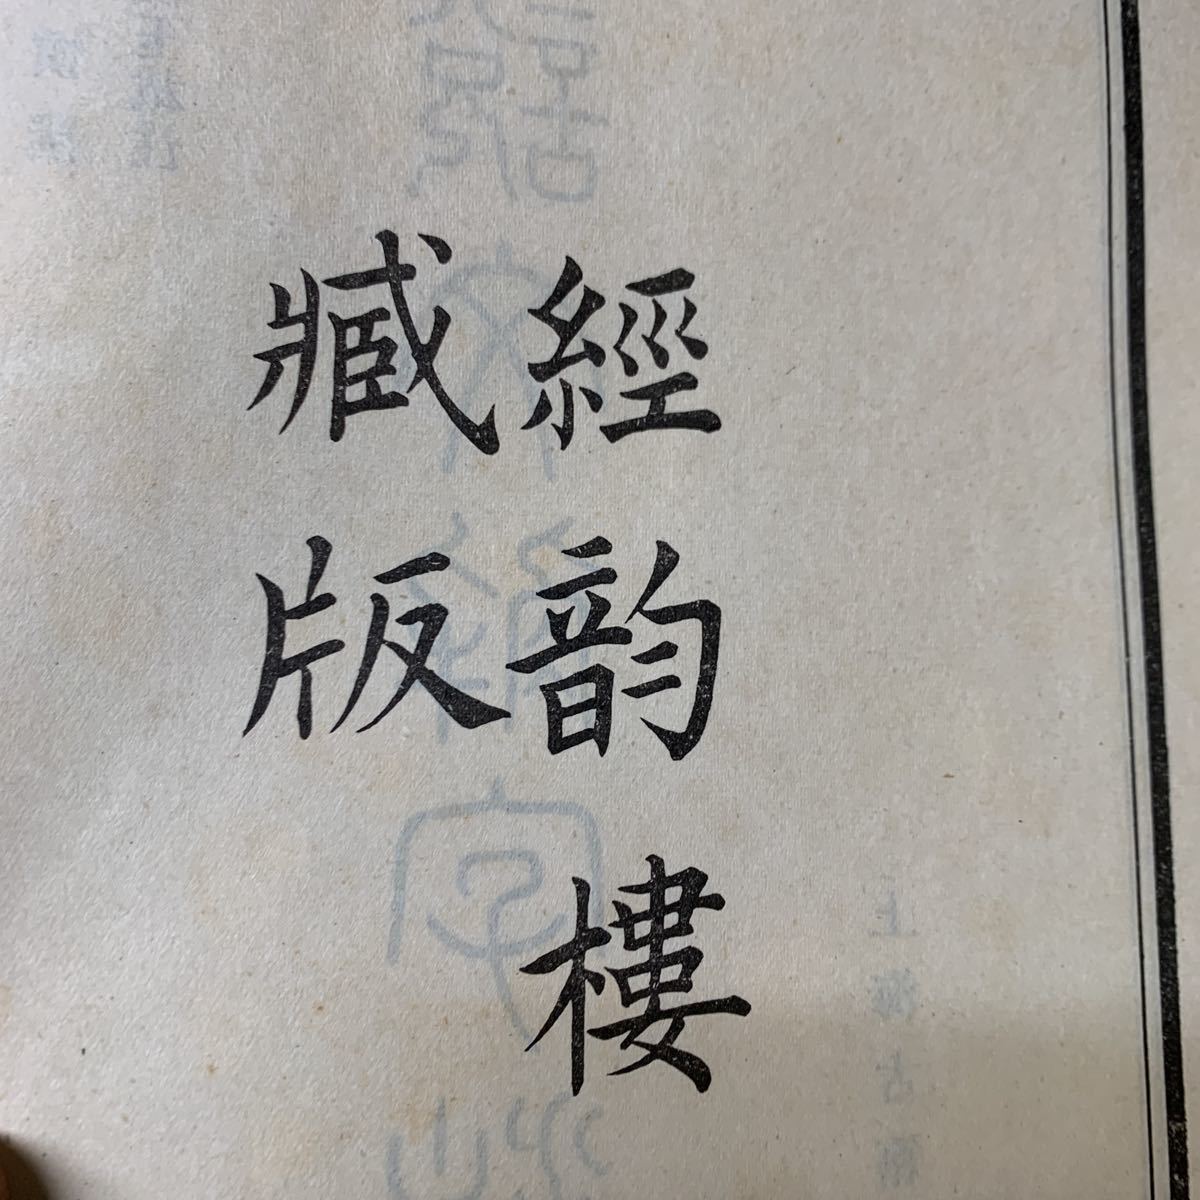 經韵樓
臧版